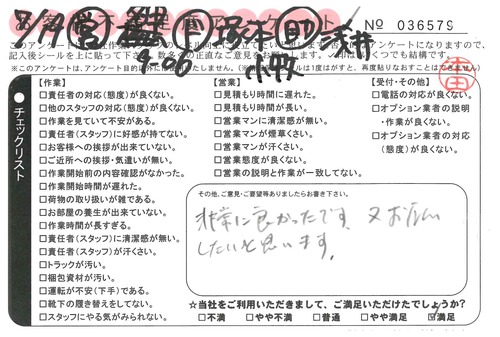 8/19
塚本 助 浅井
小林
お客様不満足度アンケート
No 036579
記入後シールを上に貼って下さい。
【作業】
□責任者の対応(態度)が良くない。
□他のスタッフの対応(態度)が良くない。
□作業を見ていて不安がある。
□責任者(スタッフ)に好感が持てない。
□お客様への挨拶が出来ていない。
□ご近所への挨拶・気遣いが無い。
□作業開始前の内容確認がなかった。
□作業開始時間が遅れた。
□荷物の取り扱いが雑である。
□お部屋の養生が出来ていない。
□作業時間が長すぎる。
□責任者(スタッフ)に清潔感が無い。
□責任者(スタッフ)が汗くさい。
□トラックが汚い。
□梱包資材が汚い。
□運転が不安(下手)である。
□靴下の履き替えをしてない。
□スタッフにやる気がみられない。
【営業】
□見積もり時間に遅れた。
□見積もり時間が長い。
□営業マンに清潔感が無い。
□営業マンが煙草くさい。
□営業マンが汗くさい。
□営業態度が良くない。
□営業の説明と作業が一致してない。
【受付・その他】
□電話の対応が良くない。
□オプション業者の説明
・作業が良くない。
□オプション業者の対応
(態度)が良くない。
チェックリスト
その他、ご意見・ご要望等ありましたらお書き下さい。
非常に良かったです。又お願い
したいと思います。
☆当社をご利用いただきまして、ご満足いただけたでしょうか?
□不満 □やや不満 □普通 □やや満足 ☑満足